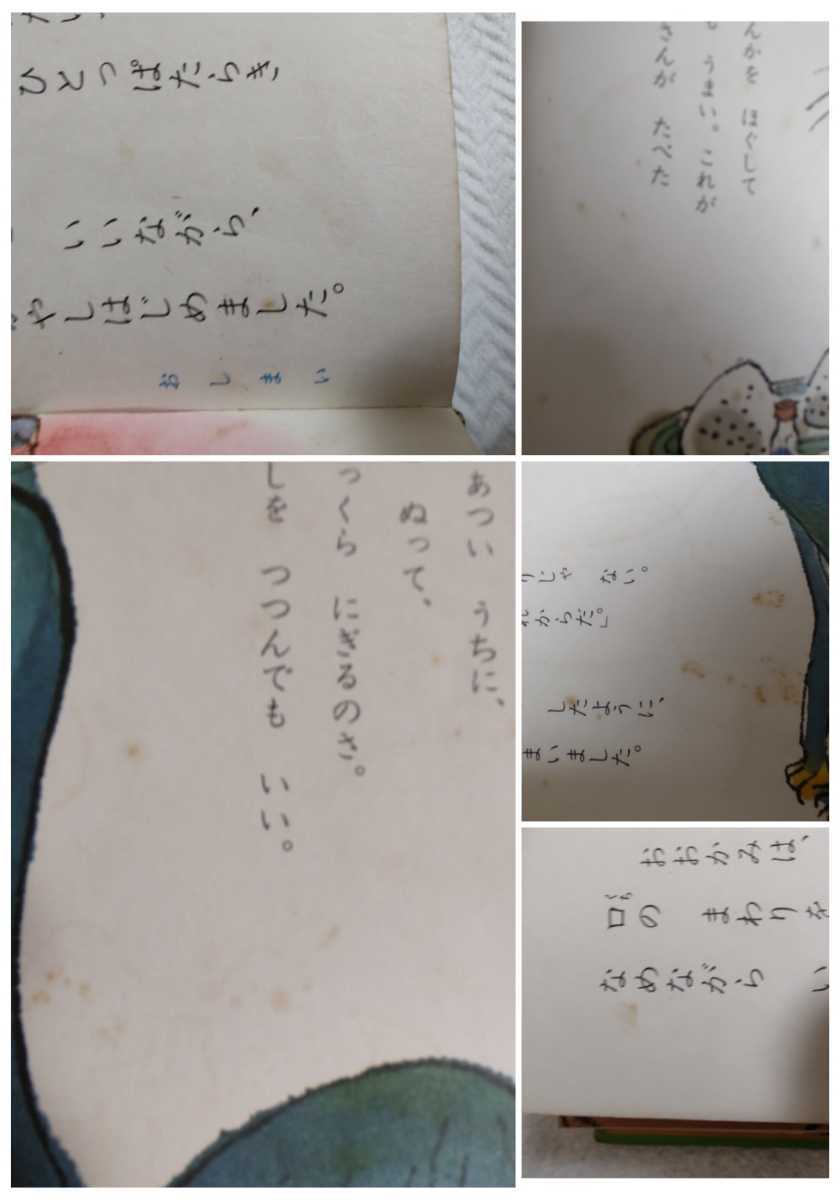 ひとっぱたらき、
いいながら、
やしはじめました。
おしまい
んかを ほぐして
うまい。これが
さんが たべた
あつい うちに、
ぬって、
っくら にぎるのさ。
しを つつんでも いい。
じゃ ない。
からだ」。
したように、
まいました。
おおかみは、
口の まわりを
なめながら い